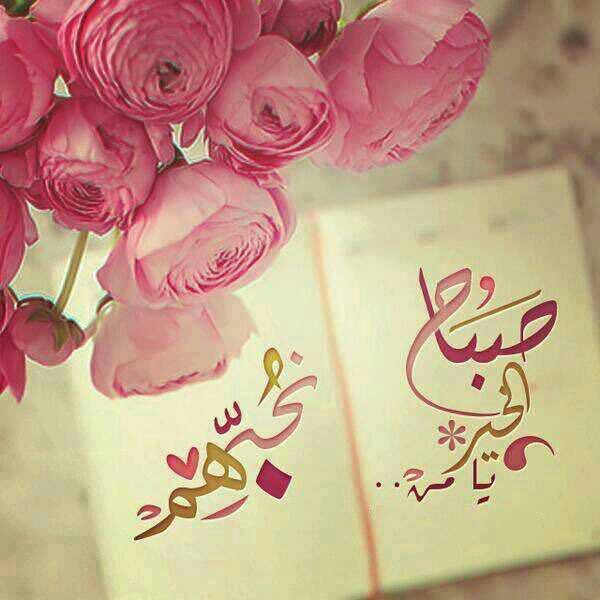 صباح
الخير
يا من..
نحبهم